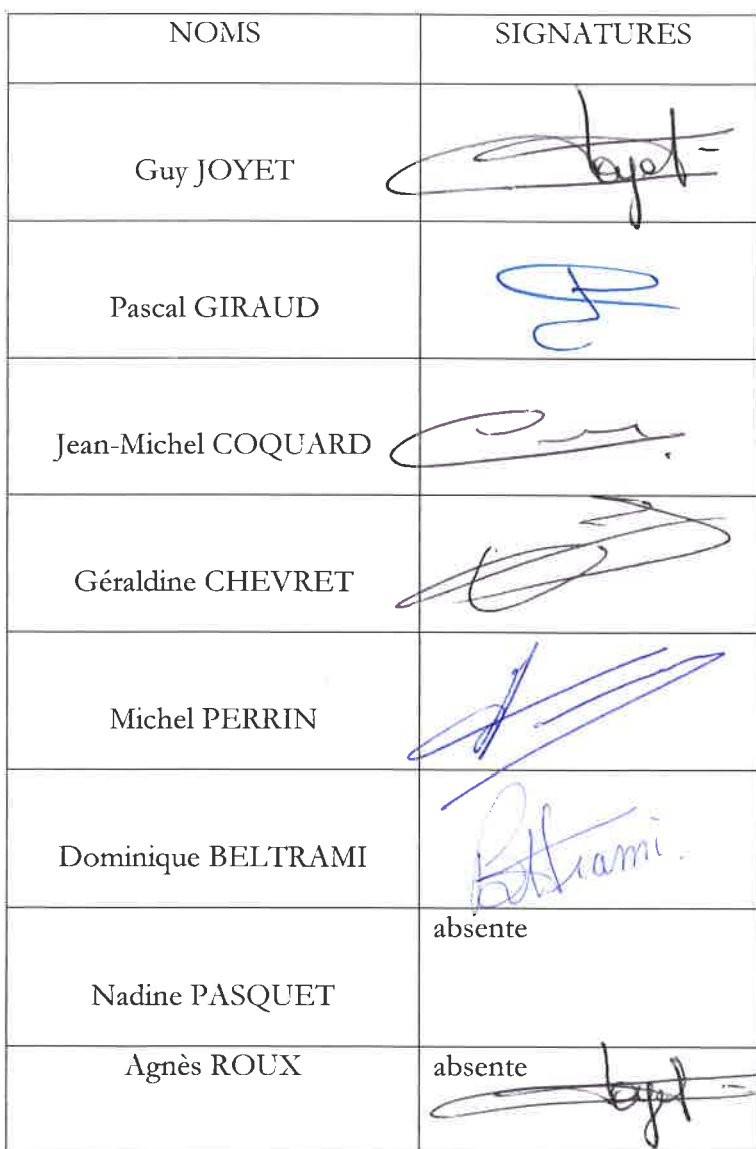 NOMS SIGNATURES
Guy JOYET Joyet
Pascal GIRAUD
Jean-Michel COQUARD
Géraldine CHEVRET
Michel PERRIN
Dominique BELTRAMI Beltrami.
absente
Nadine PASQUET
Agnès ROUX absente
Joyet